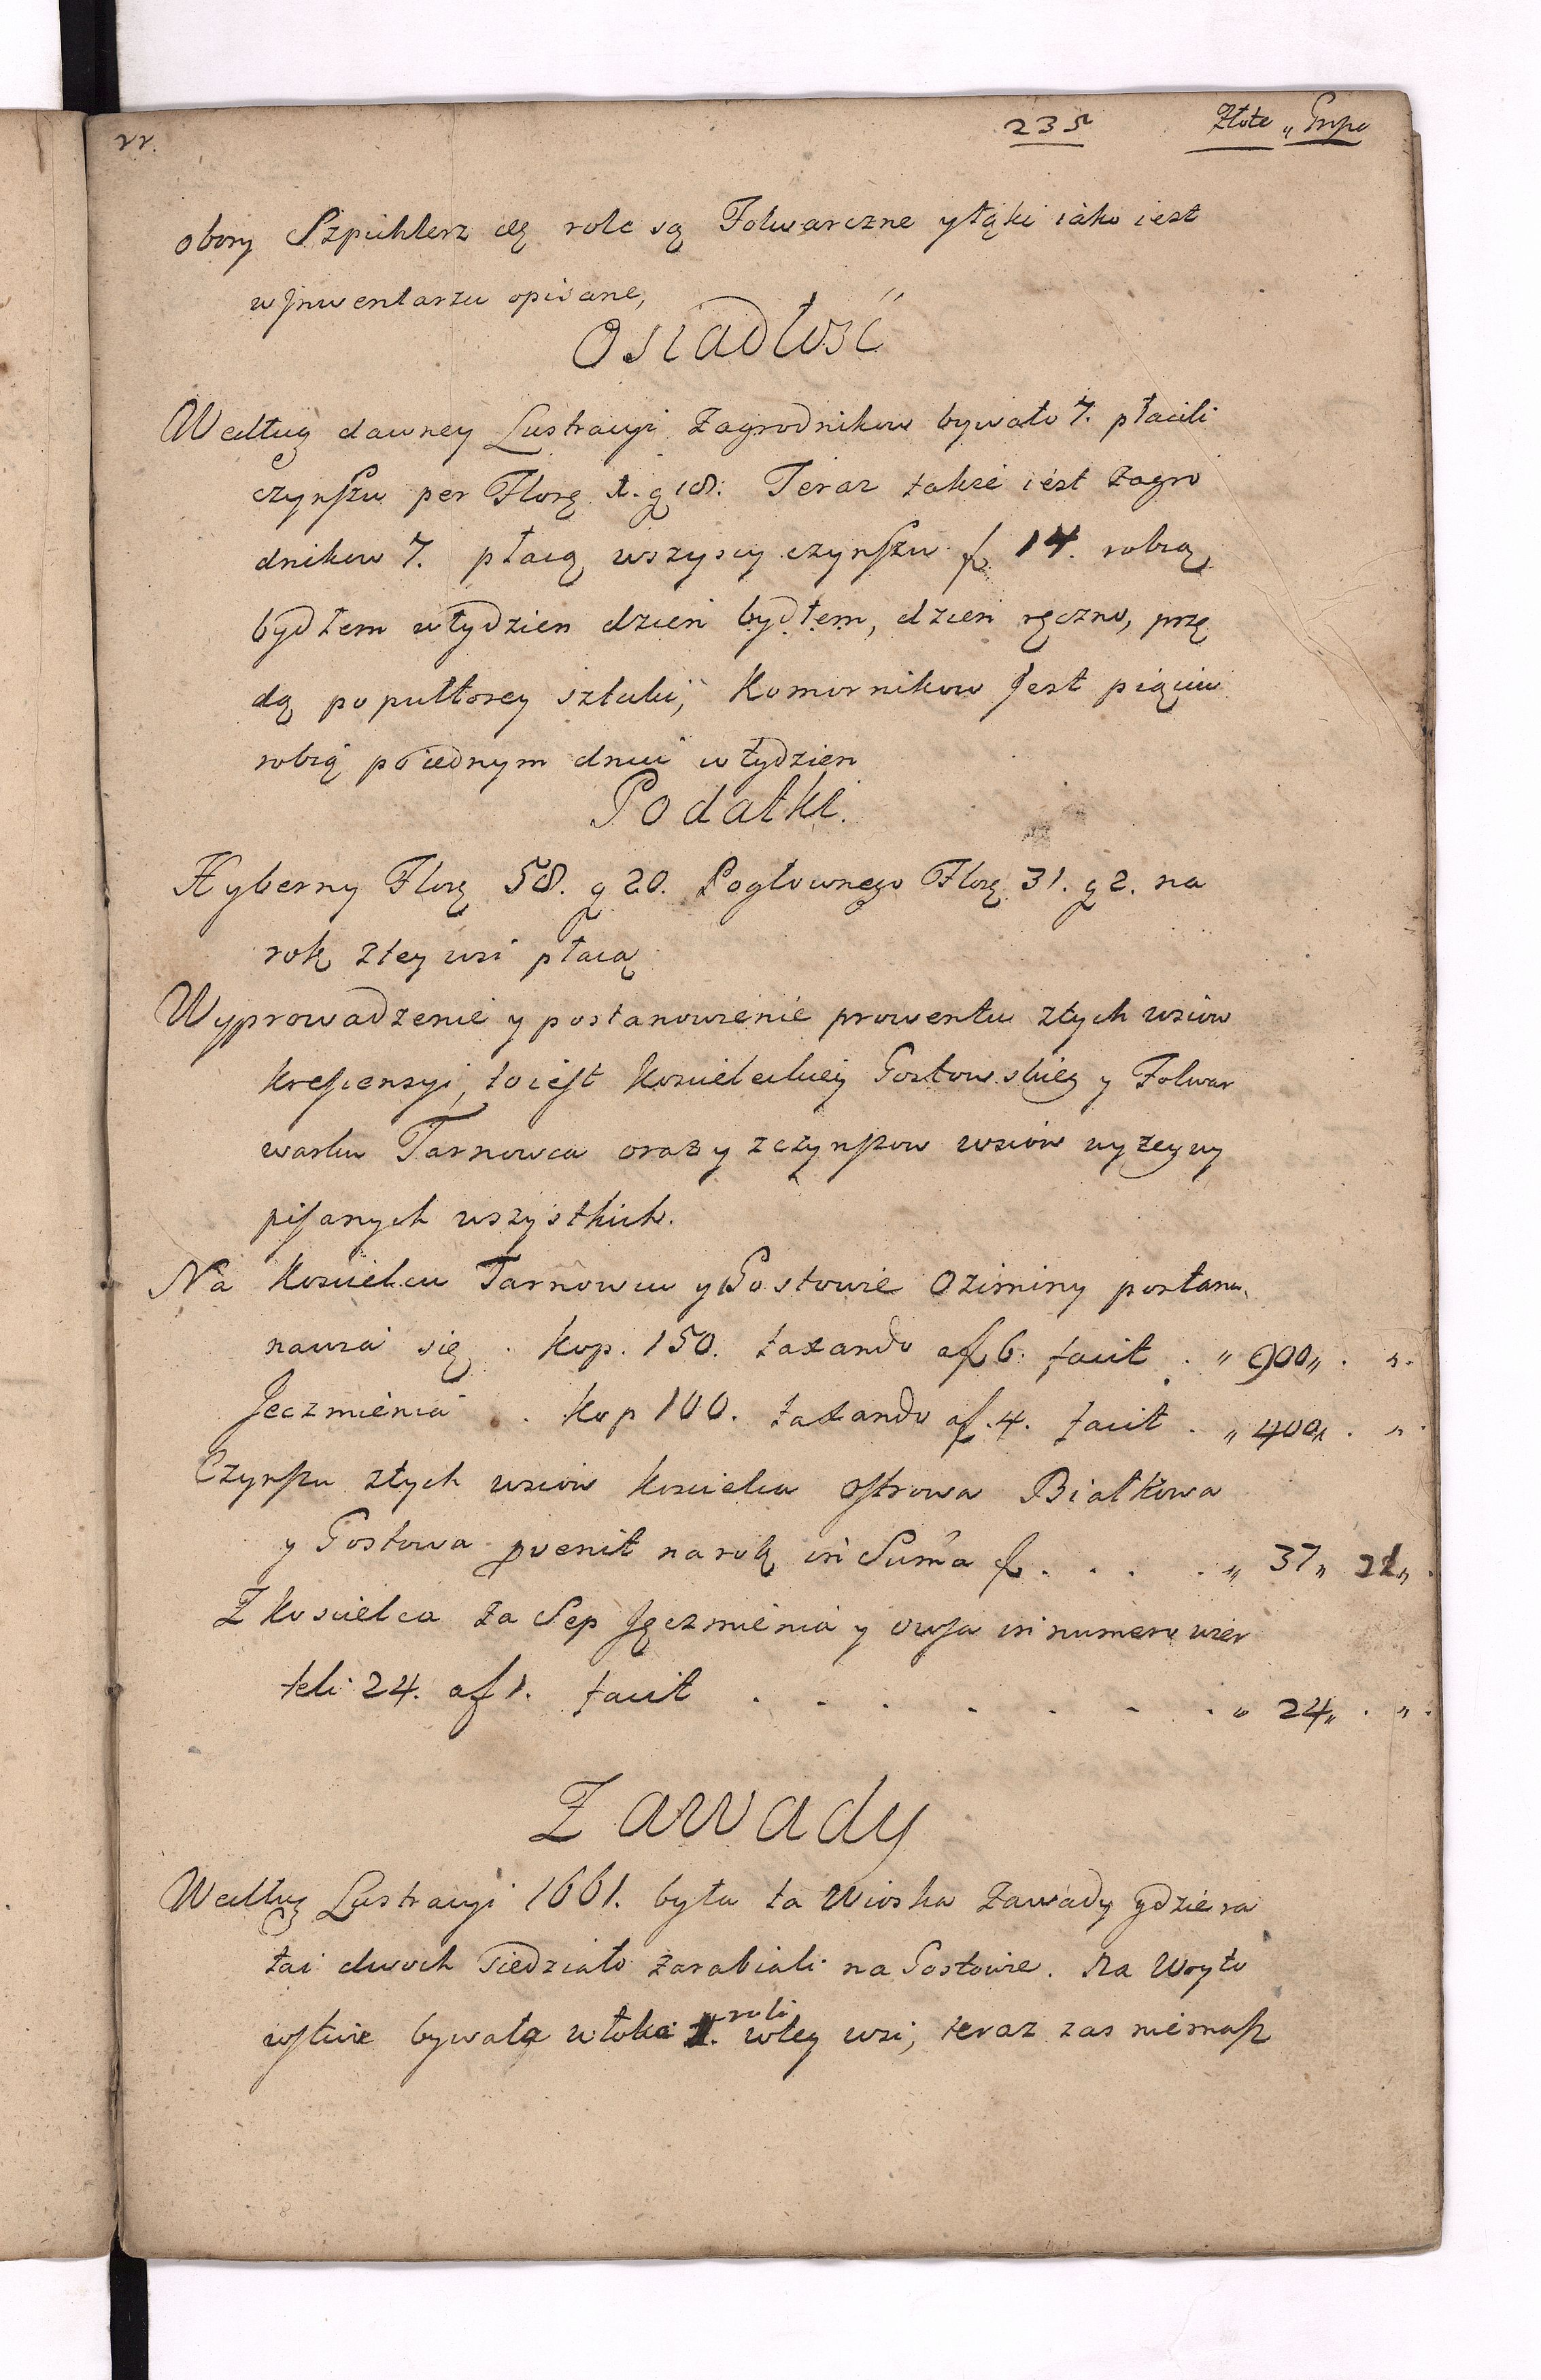 22. 235 Złote „ Grosze
obory Szpichlerz etc role są Folwarczne y łąki iako iest
w Jnwentarzu opisane,
Osiadłość
Według dawney Lustracyi Zagrodnikow bywało 7. płacili
czynszu per Flosz 1. g 18. Teraz także iest Zagro
dnikow 7. płacą wszyscy czynszu f 14. robią
bydłem w tydzien dzien bydłem, dzien ręczno, przę
dą po pułtorey sztuki, Komornikow Jest pięciu
robią po iednym dniu w tydzien
Podatki.
Hyberny Flosz 58. g 20. Pogłownego Flosz 31. g 2. na
rok z tey wsi płacą
Wyprowadzenie y postanowienie prowentu z tych wsiow
krescensyi, to iest Koscieleckiey Gostowskiey y Folwar
warku Tarnowca oraz y z czynszow wsiow wyzey wy
pisanych wszystkich.
Na Koscielcu Tarnowcu y Gostowie Oziminy postano
nawia się . kop. 150. taxando a f 6. facit . „ 900 „ . „.
Jeczmienia . . kop 100. taxando a f. 4. facit . „ 400 „ . „.
Czynszu z tych wsiow Koscielca Ostrowa Białkowa
y Gostowa pvenit na rok in Suma f. . . . „ 37 „ 21 „ .
Z Koscielca za Sep Jęczmienia y owsa in numero wier
teli 24. a f 1. facit . . . . . . . „ 24 „ . „ .
Zawady
Według Lustracyi 1661. była ta Wioska Zawady gdzie ra
tai dwoch siedziało zarabiali na Gostowie. Na Woyto
wstwie bywała włoka 1. roli w tey wsi, teraz zas niemasz